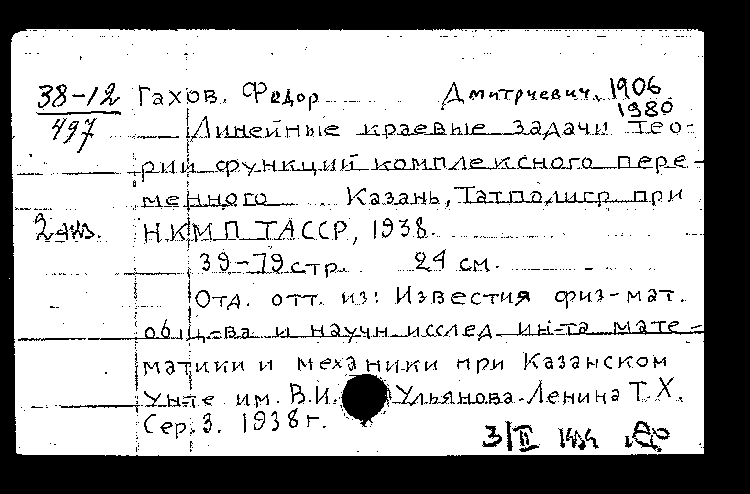 38-12 Гахов, Федор Дмитриевич. 1906
497 1980
Линейные краевые задачи тео-
рии функций комплексного пере-
менного Казань, Татполигр при
2 экз. НКМП ТАССР, 1938.
39-79 стр. 24 см.
Отд. отт. из: Известия физ-мат.
общ-ва и научн. исслед. ин-та мате-
матики и механики при Казанском
Ун-те им. В.И. Ульянова-Ленина Т. X.
Сер. 3. 1938 г.
3/II